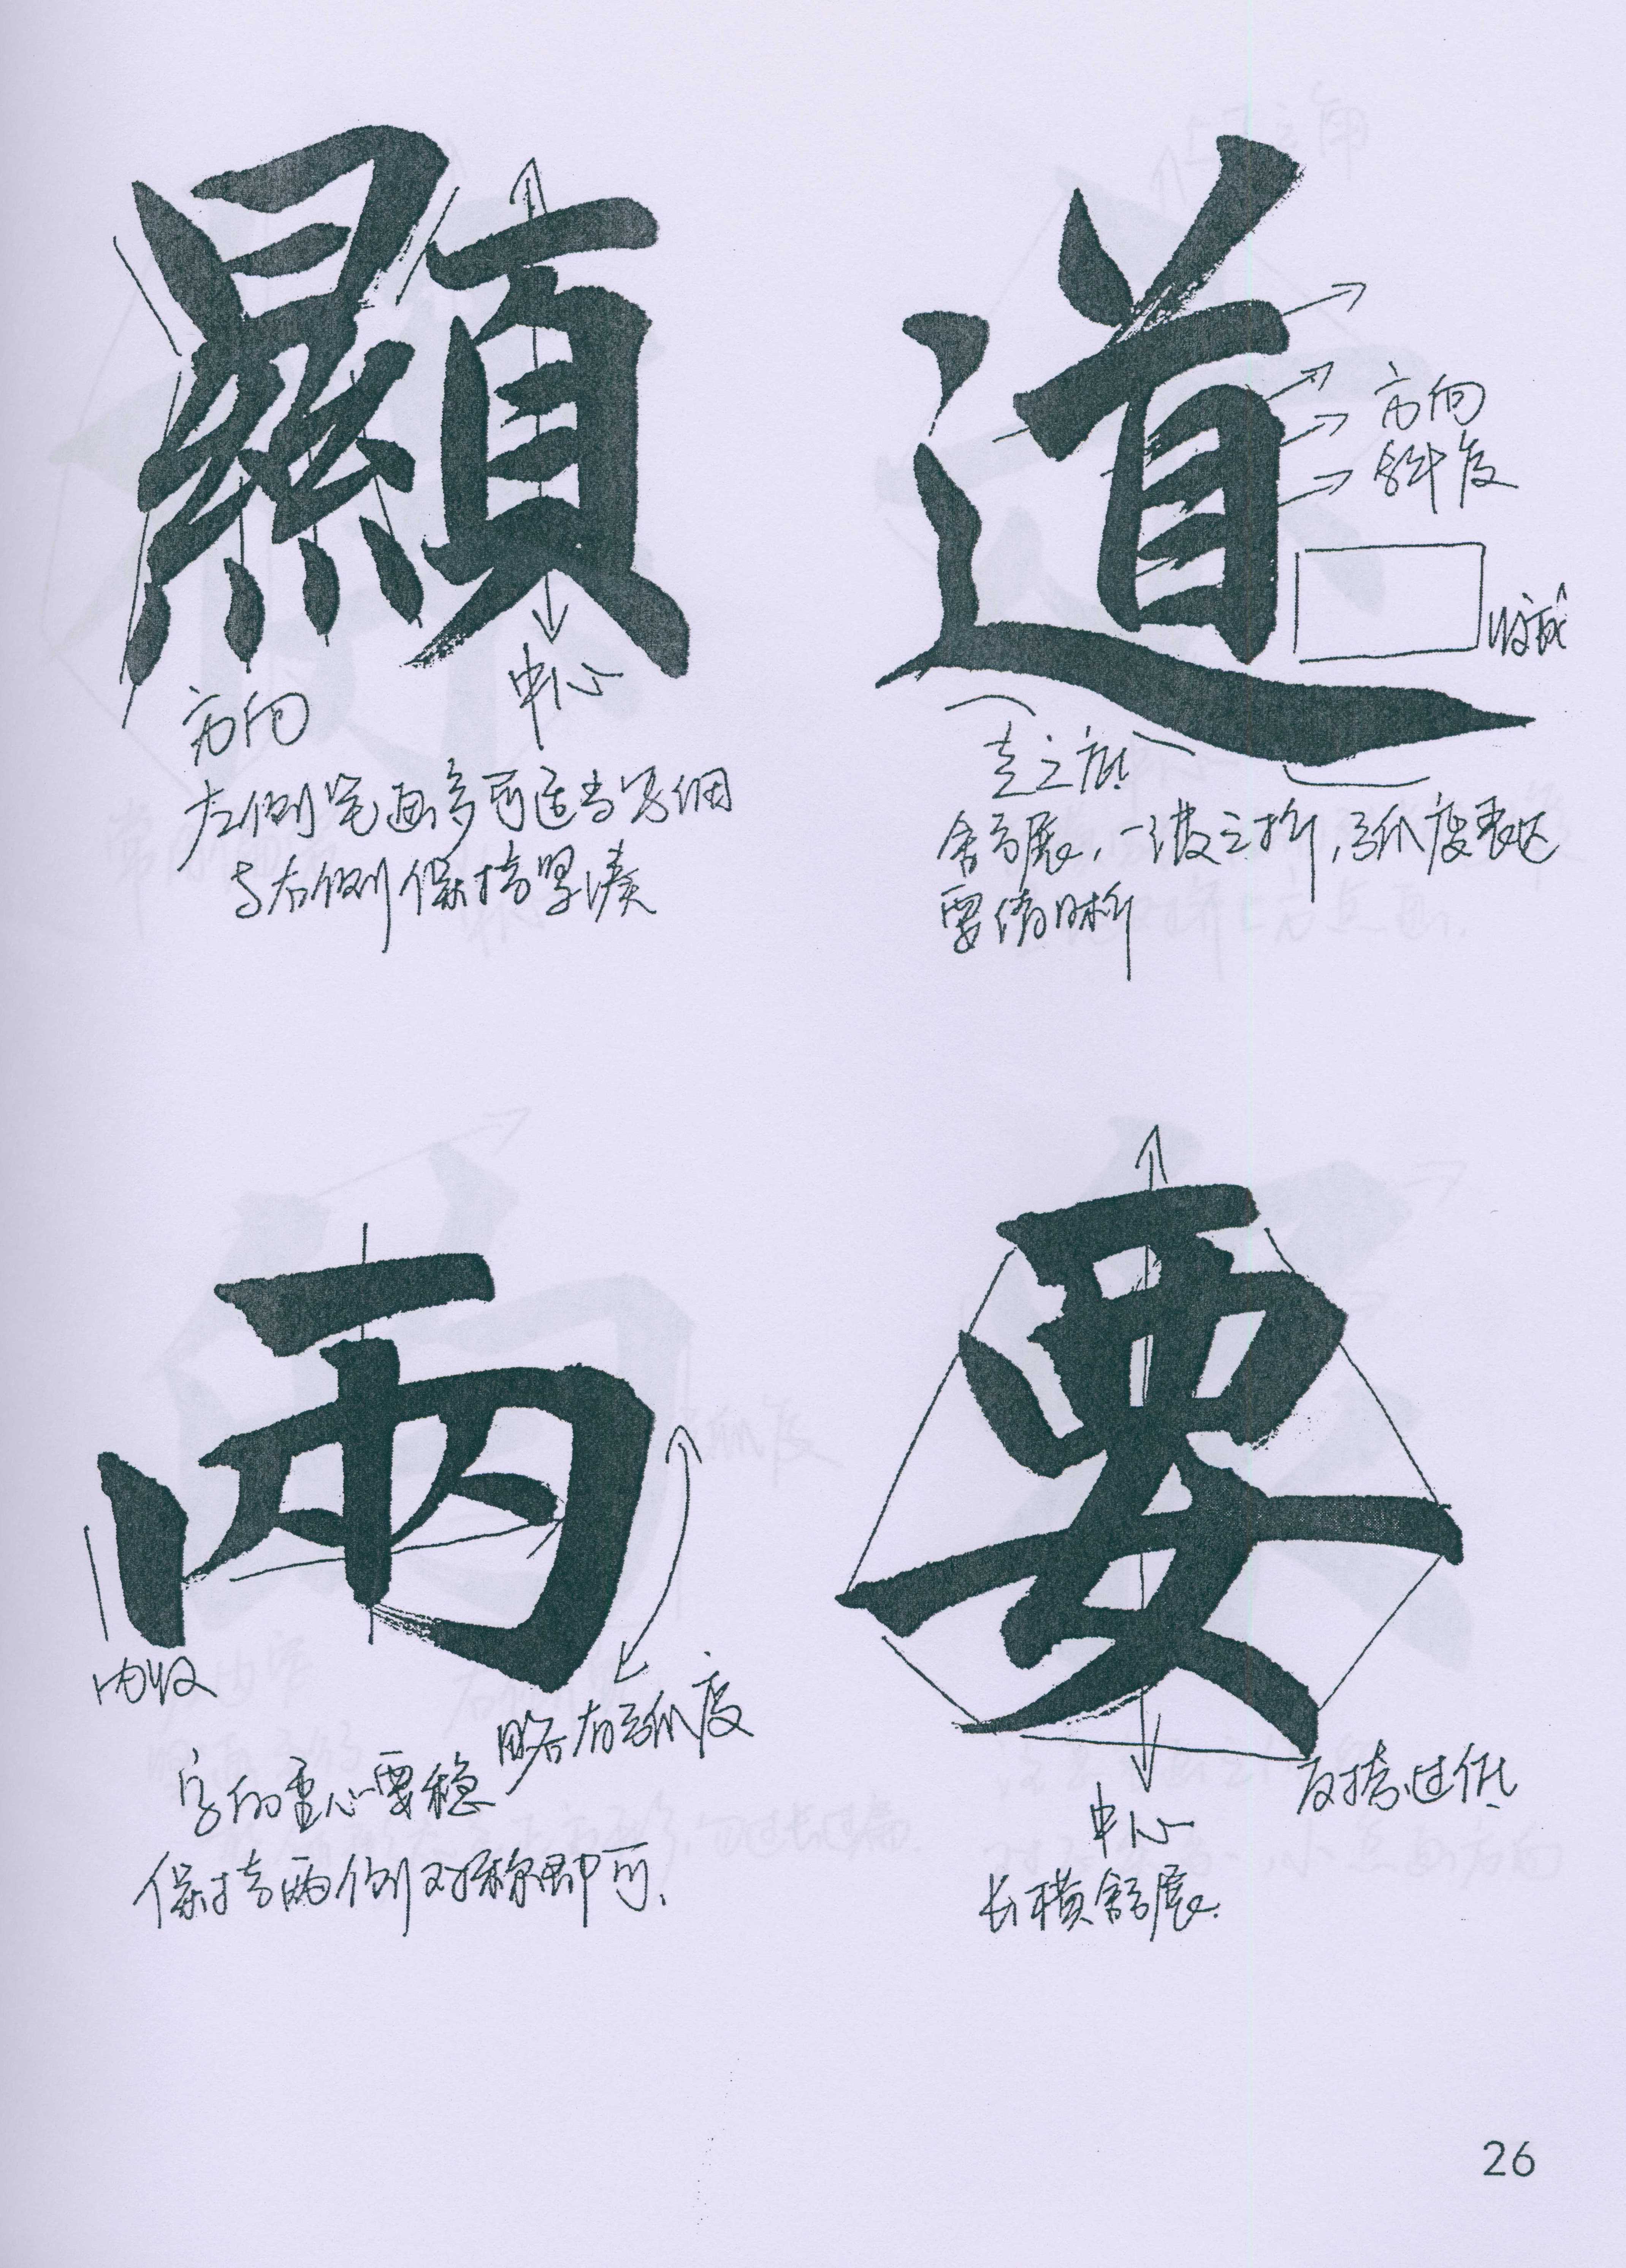 顯
中心
方向
左侧笔画多可适当写细
与右侧保持紧凑
道
方向
斜度
走之底
舍舒展,一波三折,弧度表达
要清晰
兩
内收
略有弧度
字的重心要稳
保持两侧对称即可.
要
中心
反捺过低
长横舒展.
26